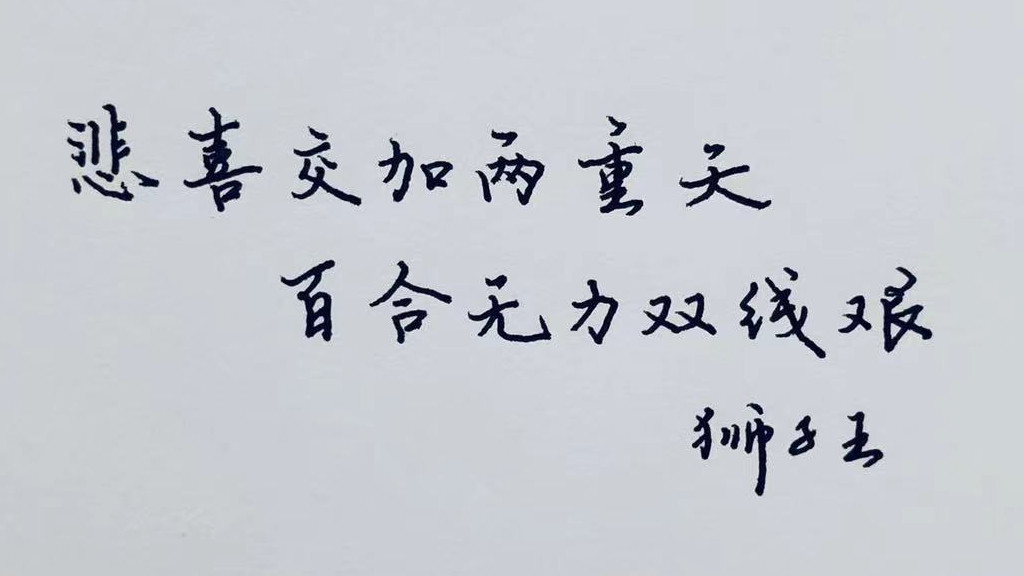 悲喜交加两重天
百合无力双线艰
狮子王